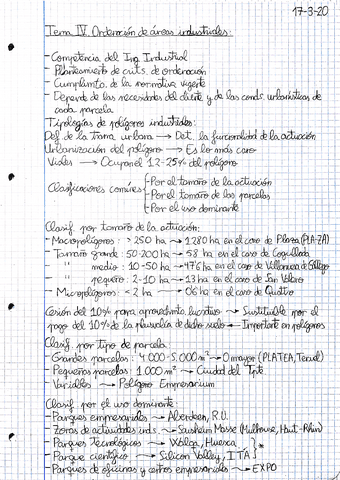 17-3-20
Tema IV. Ordenación de áreas industriales:
- Competencia del Ing. Industrial
- Planteamiento de crits. de ordenación
- Cumplimto. de la normativa vigente
- Depende de las necesidades del cliente y de las conds. urbanísticas de
cada parcela
Tipologías de polígonos industriales:
Def. de la trama urbana → Det. la funcionalidad de la actuación
Urbanización del polígono → Es lo más caro
Viales → Ocupan el 12-25% del polígono
Clasificaciones comunes
- Por el tamaño de la actuación
- Por el tamaño de las parcelas
- Por el uso dominante
Clasif. por tamaño de la actuación:
- Macropolígonos: > 250 ha → 1280 ha en el caso de Plaza (PLA-ZA)
- Tamaño grande: 50-200 ha → 58 ha en el caso de Cogullada
" medio: 10-50 ha → 47'6 ha en el caso de Villanueva de Gállego
" pequeño: 2-10 ha → 13 ha en el caso de San Valero
- Micropolígonos: < 2 ha → 0'6 ha en el caso de Quattro
Cesión del 10% para aprovechmto. lucrativo → Sustituible por el
pago del 10% de la plusvalía de dicho suelo → Importante en polígonos
Clasif. por tipo de parcela:
- Grandes parcelas: 4.000-5.000 m² → O mayor (PLATEA, Teruel)
- Pequeñas parcelas: 1.000 m² → Ciudad del Tpte
- Variables → Polígono Empresarium
Clasif. por el uso dominante:
- Parques empresariales → Aberdeen, R.U.
- Zonas de actividades inds. → Sausheim Masse (Mulhouse, Haut-Rhin)
- Parques Tecnológicos → Walqa, Huesca
- Parque científico → Silicon Valley, ITA } *
- Parques de oficinas y centros empresariales → EXPO